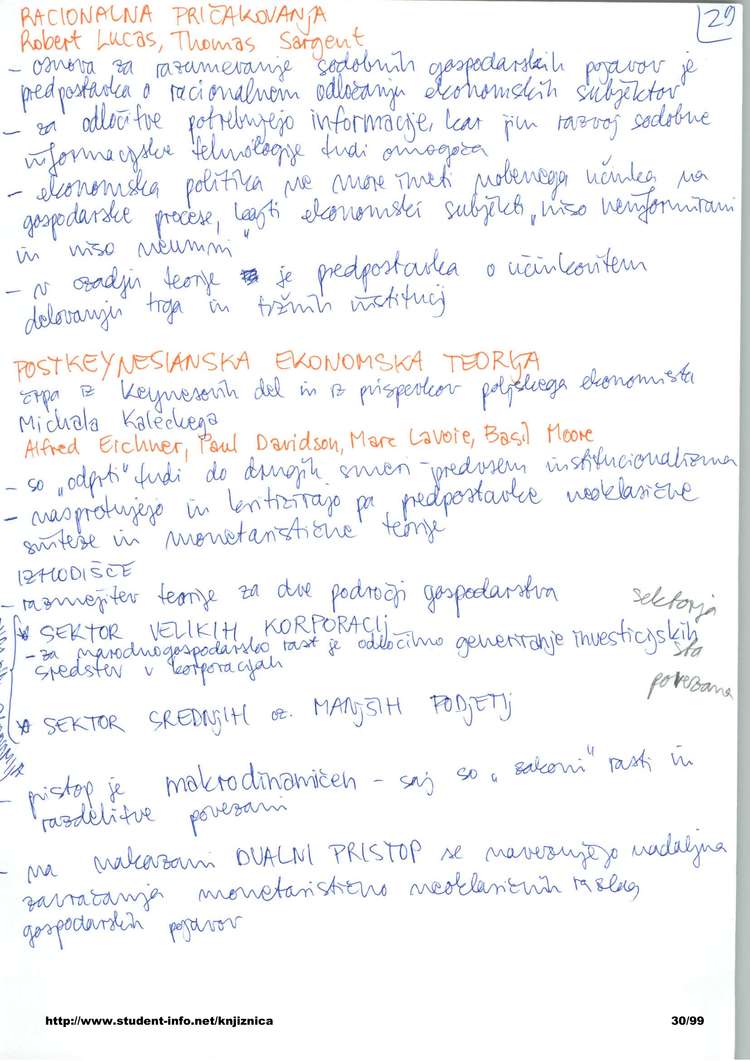 29
RACIONALNA PRIČAKOVANJA
Robert Lucas, Thomas Sargent
- osnova za razumevanje sodobnih gospodarskih pojavov je
predpostavka o racionalnem odločanju ekonomskih subjektov
- za odločitve potrebujejo informacije, kar jim razvoj sodobne
informacijske tehnologije tudi omogoča
- ekonomska politika ne more imeti nobenega učinka na
gospodarske procese, kajti ekonomski subjekti „niso neinformirani
in niso neumni"
- v ozadju teorije je predpostavka o učinkovitem
delovanju trga in tržnih institucij
POSTKEYNESIANSKA EKONOMSKA TEORIJA
črpa iz Keynesovih del in iz prispevkov poljskega ekonomista
Michala Kaleckega
Alfred Eichner, Paul Davidson, Marc Lavoie, Basil Moore
- so „odprti" tudi do drugih smeri - predvsem institucionalizma
- nasprotujejo in kritizirajo pa predpostavke neoklasične
sinteze in monetaristične teorije
IZHODIŠČE
- razmejitev teorije za dve področji gospodarstva
sektorja
* SEKTOR VELIKIH KORPORACIJ
- za narodnogospodarsko rast je odločilno generiranje investicijskih
sta
sredstev v korporacijah
povezana
* SEKTOR SREDNJIH oz. MANJŠIH PODJETIJ
- pristop je makrodinamičen - saj so „zakoni" rasti in
razdelitve povezani
- na nakazani DUALNI PRISTOP se navezujejo nadaljna
zavračanja monetaristično neoklasičnih razlag
gospodarskih pojavov
http://www.student-info.net/knjiznica
30/99